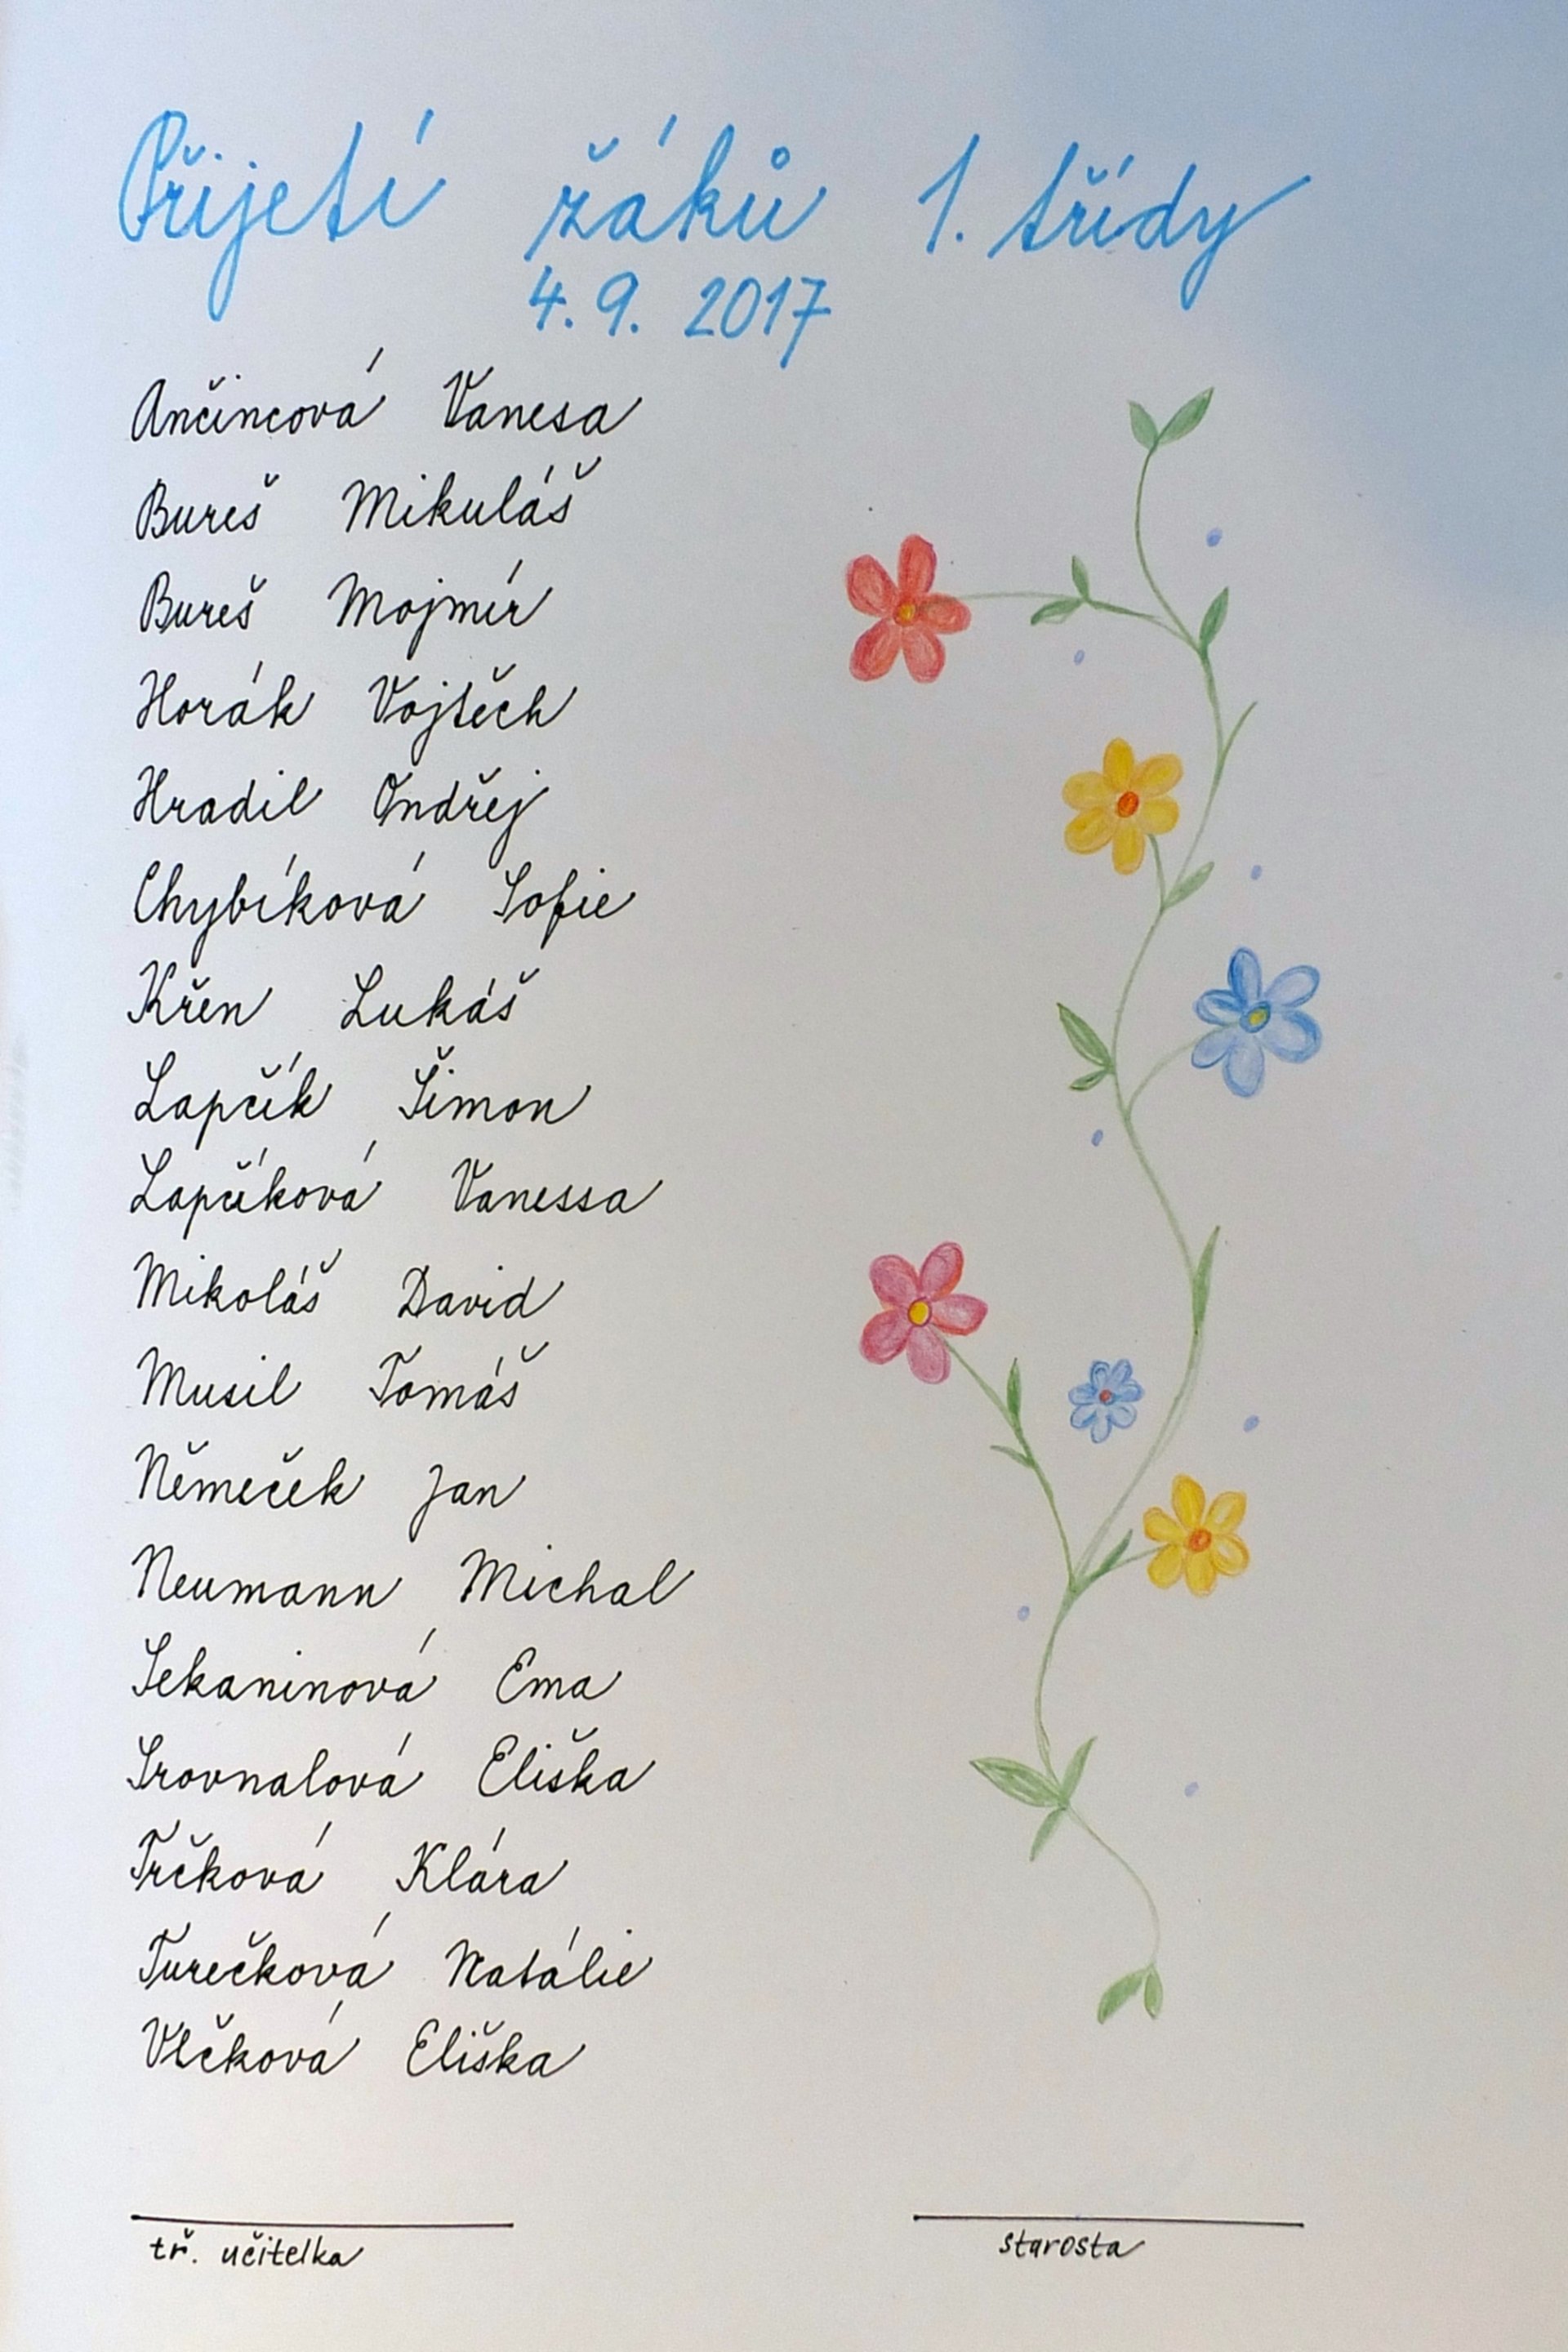 Přijetí žáků 1. třídy
4. 9. 2017
Ančincová Vanesa
Bureš Mikuláš
Bureš Mojmír
Horák Vojtěch
Hradil Ondřej
Chybíková Sofie
Křen Lukáš
Lapčík Šimon
Lapčíková Vanessa
Mikoláš David
Musil Tomáš
Němeček Jan
Neumann Michal
Sekaninová Ema
Srovnalová Eliška
Trčková Klára
Turečková Natálie
Vlčková Eliška
tř. učitelka starosta